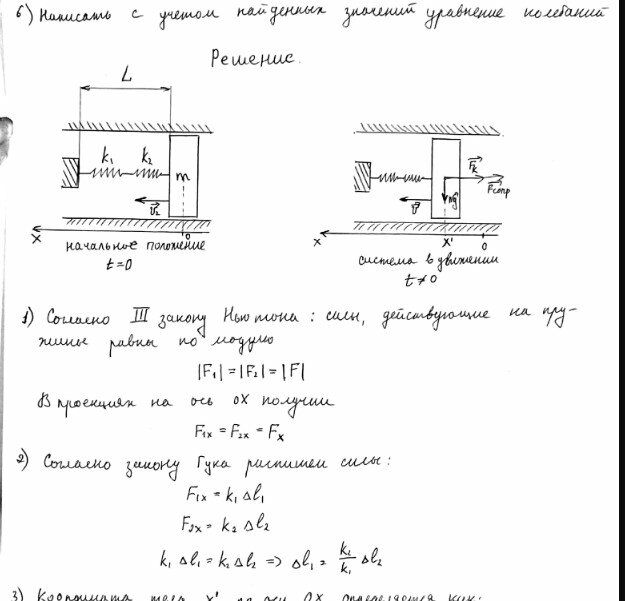 б) Написать с учетом найденных значений уравнение колебаний
Решение.
L
k₁ k₂
m
v⃗₂
x
0
начальное положение
t=0
F⃗к
F⃗сопр
mg⃗
v⃗
x
x'
0
система в движении
t≠0
1) Согласно III закону Ньютона: силы, действующие на пру-
жины равны по модулю
|F₁|=|F₂|=|F|
В проекциях на ось OX получим
F₁ₓ = F₂ₓ = Fₓ
2) Согласно закону Гука распишем силы:
F₁ₓ = k₁ Δl₁
F₂ₓ = k₂ Δl₂
k₁ Δl₁ = k₂ Δl₂ => Δl₁ = k₂/k₁ Δl₂
3) Координата тела x' по оси OX определяется как: